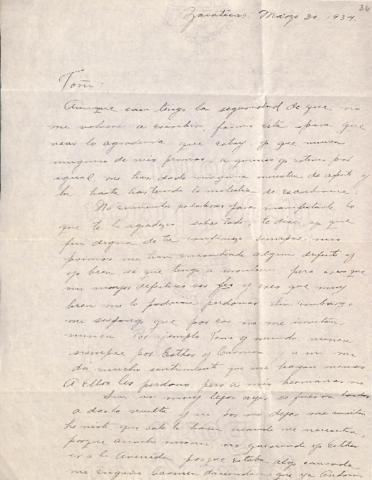 36
Zacatecas, Marzo 20, 1934.
Toñi:
Aunque casi tengo la seguridad de que no
me volverá a escribir, formo esta para que
vea lo agradecida que estoy, ya que nunca
ninguno de mis primos, a quienes yo estimo por
igual, me han dado ninguna muestra de afecto y
la hasta haciendo la molestia de escribirme.
No encuentro palabras para manifestarle lo
que te lo agradezco sobre todo, te dice, ya que
fui digna de tu confianza siempre, mis
primos me han encontrado algun defecto y
yo bien se que tengo a montones pero creo que
mi mayor defecto es ser fea y creo que muy
bien me lo podrían perdonar sin embargo
me supongo que por eso no me invitan
nunca. Por ejemplo Tono y mundo vienen
siempre por Esther y Carmen y a mi me
da mucho sentimiento que me hagan menos
A Ellos les perdono pero a mis hermanas no
Sin ir muy lejos ayer se fueron todos
a dar la vuelta y a mi me dejan
he visto que solo le hacen cuando me necesitan,
porque anoche mismo no queriendo ya Esther
ir a la Avenida porque estaba muy cansada
me Carmen diciendo que ya